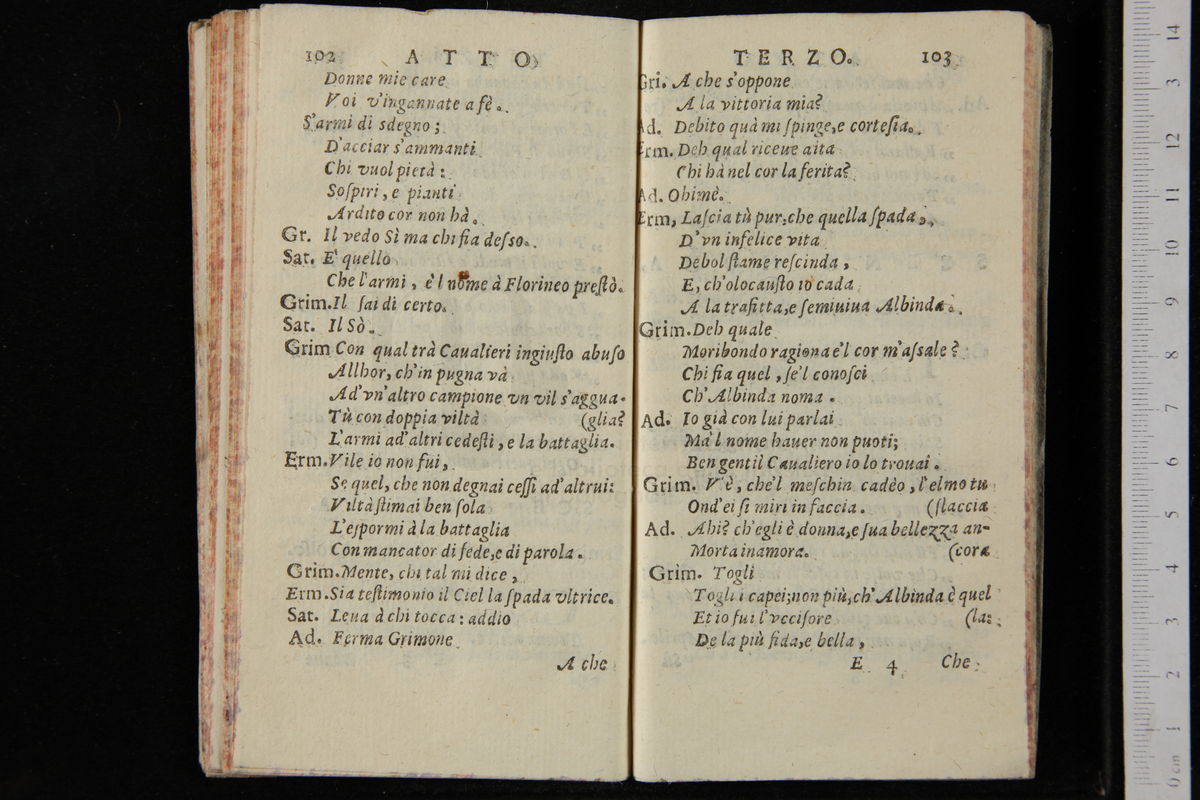 102 A T T O
Donne mie care
Voi v'ingannate a fè.
S'armi di sdegno;
D'acciar s'ammanti
Chi vuol pietà:
Soſpiri, e pianti
Ardito cor non hà.
Gr. Il vedo Sì ma chi fia deſſo.
Sat. E' quello
Che l'armi, e'l nome à Florineo preſtò.
Grim. Il ſai di certo.
Sat. Il Sò.
Grim Con qual trà Caualieri ingiuſto abuſo
Allhor, ch'in pugna và
Ad'vn'altro campione vn vil s'aggua-
Tù con doppia viltà (glia?
L'armi ad'altri cedeſti, e la battaglia.
Erm. Vile io non fui,
Se quel, che non degnai ceſſi ad'altrui:
Viltà ſtimai ben ſola
L'eſpormi à la battaglia
Con mancator di fede, e di parola.
Grim. Mente, chi tal mi dice,
Erm. Sia teſtimonio il Ciel la ſpada vltrice.
Sat. Leua à chi tocca: addio
Ad. Ferma Grimone
A che
T E R Z O. 103
Gri. A che s'oppone
A la vittoria mia?
Ad. Debito quà mi ſpinge, e corteſia.
Erm. Deh qual riceue aita
Chi hà nel cor la ferita?
Ad. Ohimè.
Erm, Laſcia tù pur, che quella ſpada,
D'vn infelice vita
Debol ſtame reſcinda,
E, ch'olocauſto io cada
A la trafitta, e ſemiuiua Albinda.
Grim. Deh quale
Moribondo ragiona e'l cor m'aſsale?
Chi fia quel, ſe'l conoſci
Ch'Albinda noma.
Ad. Io già con lui parlai
Ma'l nome hauer non puoti;
Ben gentil Caualiero io lo trouai.
Grim. V'è, che'l meſchin cadèo, l'elmo tu
Ond'ei ſi miri in faccia. (ſlaccia
Ad. Ahi? ch'egli è donna, e ſua bellezza an-
Morta inamora. (cora
Grim. Togli
Togli i capei; non più, ch'Albinda è quel
Et io fui l'vcciſore (la:
De la più fida, e bella,
E 4 Che